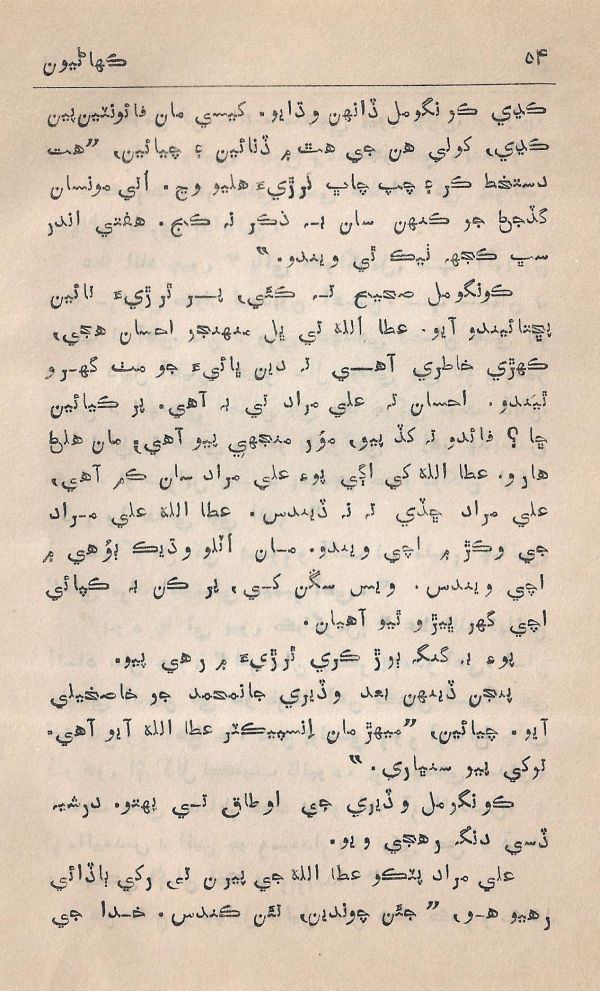 ۵۴ ڪهاڻيون
ڪڍي ڪونگومل ڏانهن وڌايو. کيسي مان فائونٽين پين
ڪڍي، کولي هن جي هٿ ۾ ڏنائين ۽ چيائين، ”هت
دستخط ڪر ۽ چپ چاپ ٿرڙيءَ هليو وڃ. اتي مونسان
گڏجڻ جو ڪنهن سان بہ ذڪر نہ ڪج. هفتي اندر
سڀ ڪجهہ ٺيڪ ٿي ويندو.“
ڪونگومل صحيح تہ ڪئي، پر ٿرڙيءَ تائين
پڇتائيندو آيو. عطا الله تي ڀل منهنجو احسان هجي،
ڪهڙي خاطري آهي تہ دين ڀائيءَ جو مٽ گهرو
ٿيندو. احسان تہ علي مراد تي بہ آهي. پر ڪيائين
ڇا؟ فائدو تہ کڏ پيو، مؤر منجهي پيو آهي، مان هلڻ
هارو. عطا الله کي اڳي پوءِ علي مراد سان ڪم آهي،
علي مراد ڇڏي تہ نہ ڏيندس. عطا الله علي مراد
جي وڪڙ ۾ اچي ويندو. مان اٽلو وڌيڪ ٻؤهي ۾
اچي ويندس. ويس سڱن کي، پر ڪن بہ ڪپائي
اچي گهر ڀيڙو ٿيو آهيان.
پوءِ بہ گنگہ ٻوڙ ڪري ٿرڙيءَ ۾ رهي پيو.
پنجن ڏينهن بعد وڏيري جانمحمد جو خاصخيلي
آيو. چيائين، ”ميهڙ مان انسپيڪٽر عطا الله آيو آهي.
توکي پيو سنڀاري.“
ڪونگومل وڏيري جي اوطاق تي پهتو. درشيہ
ڏسي دنگہ رهجي ويو.
علي مراد پٽڪو عطا الله جي پيرن تي رکي ٻاڏائي
رهيو هو، ”جئن چوندين، تئن ڪندس. خدا جي